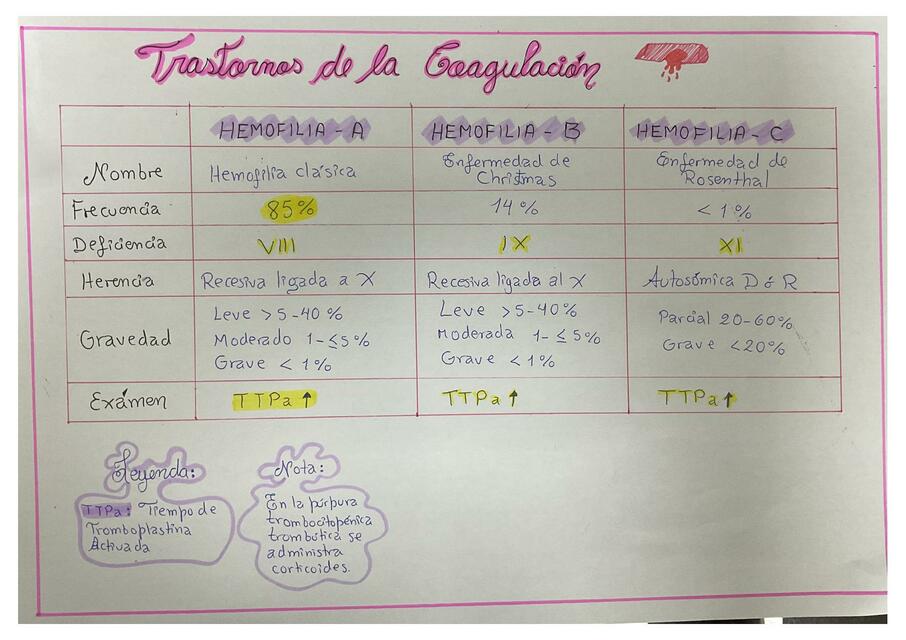 Trastornos de la Coagulación
HEMOFILIA - A HEMOFILIA - B HEMOFILIA - C
Nombre Hemofilia clásica Enfermedad de Christmas Enfermedad de Rosenthal
Frecuencia 85% 14% < 1%
Deficiencia VIII IX XI
Herencia Recesiva ligada a X Recesiva ligada al X Autosómica D ó R
Gravedad
Leve > 5-40% Leve > 5-40% Parcial 20-60%
Moderado 1-≤5% Moderada 1-≤5% Grave <20%
Grave < 1% Grave < 1%
Exámen TTPa ↑ TTPa ↑ TTPa ↑
Leyenda:
TTPa: Tiempo de
Tromboplastina
Activada
Nota:
En la púrpura
trombocitopénica
trombótica se
administra
corticoides.